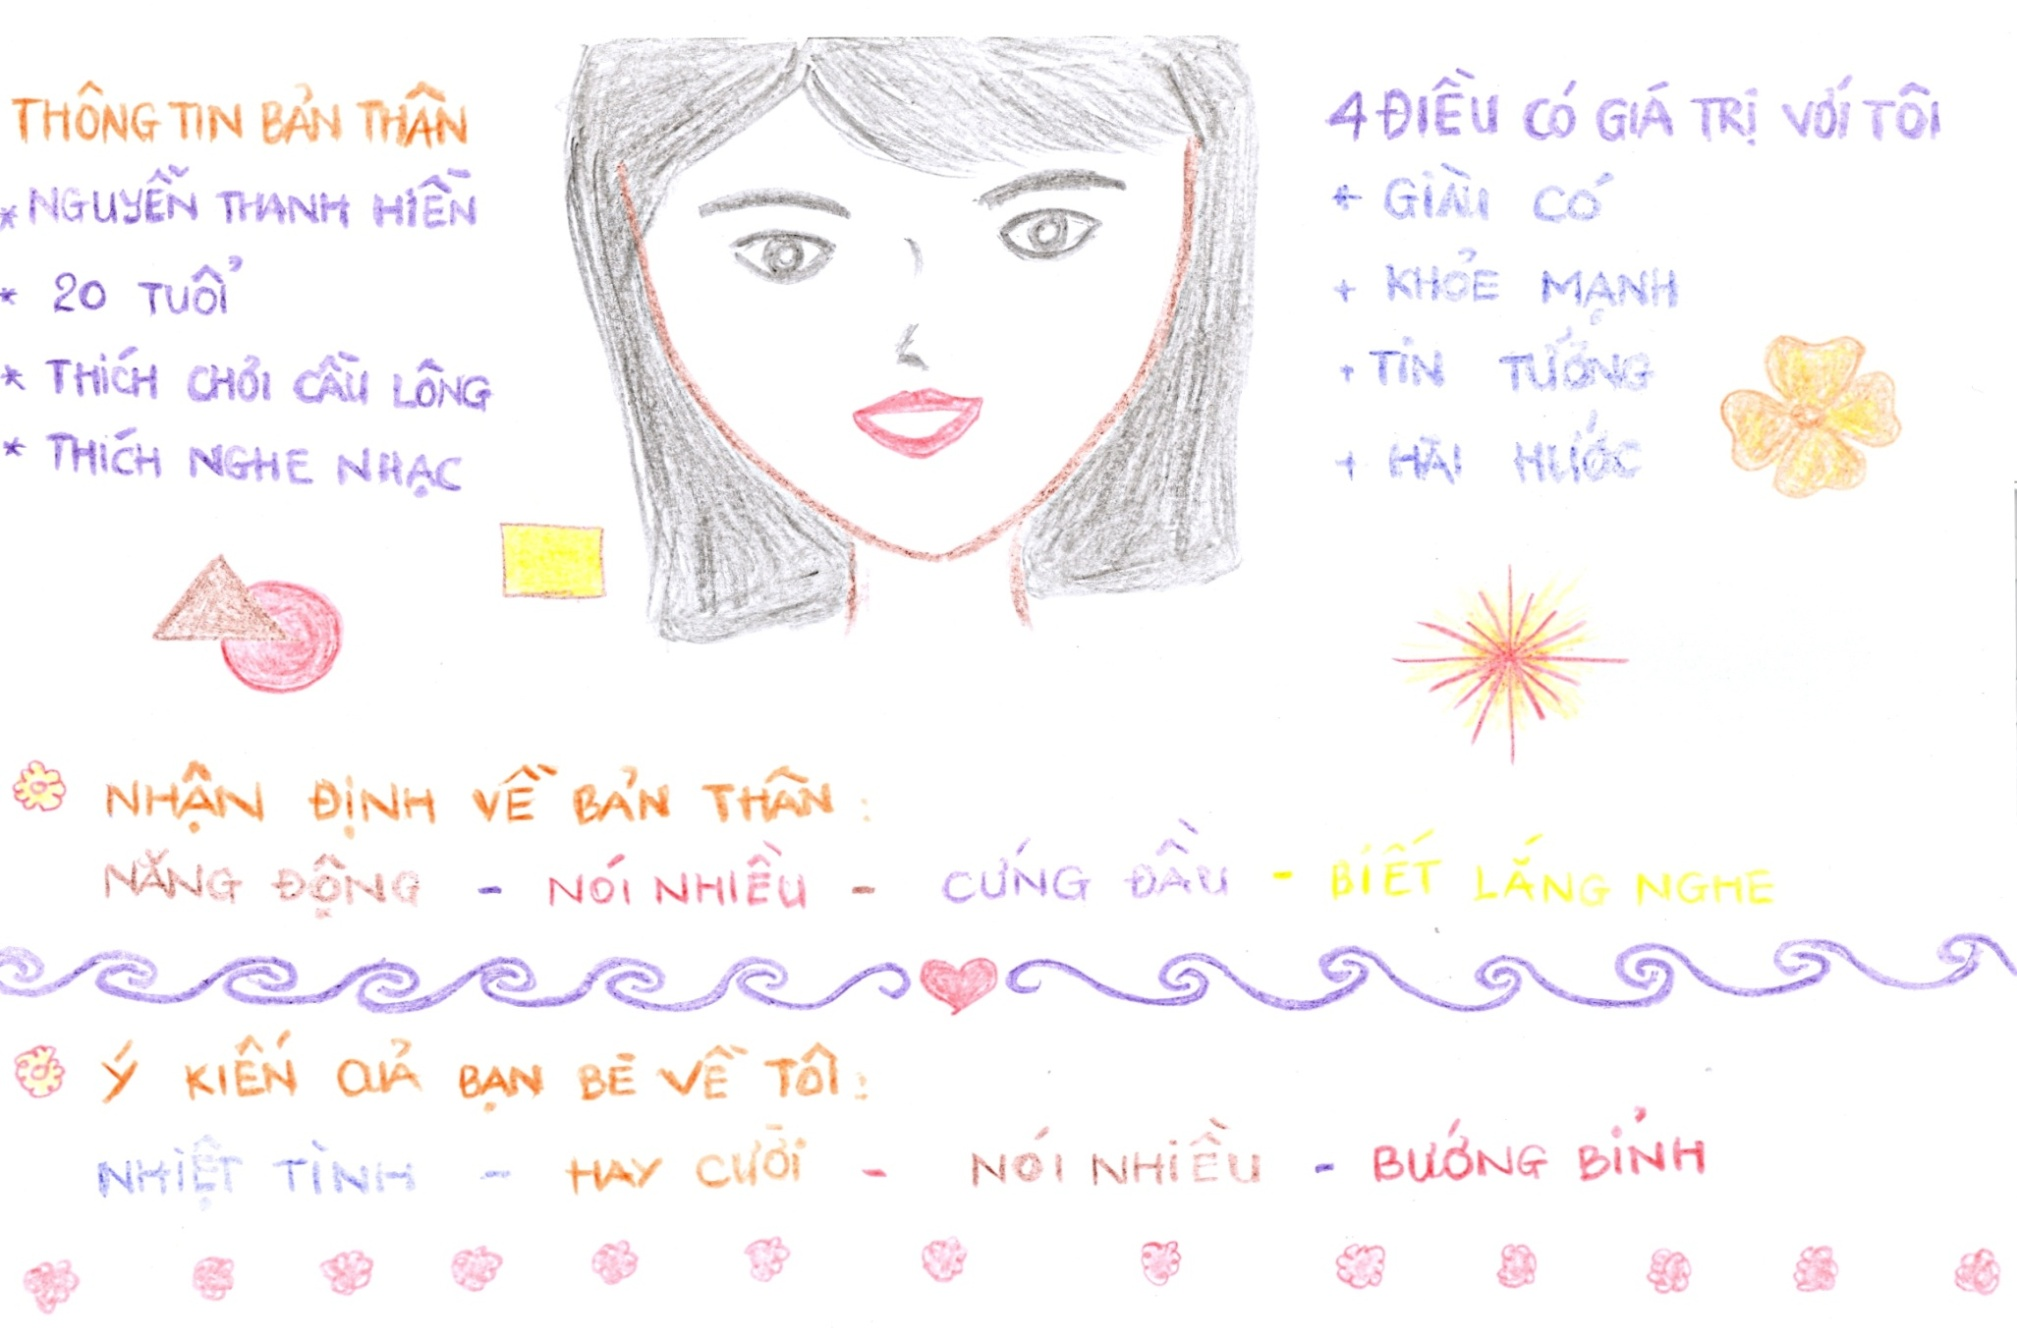 THÔNG TIN BẢN THÂN
* NGUYỄN THANH HIỀN
* 20 TUỔI
* THÍCH CHƠI CẦU LÔNG
* THÍCH NGHE NHẠC
4 ĐIỀU CÓ GIÁ TRỊ VỚI TÔI
+ GIÀU CÓ
+ KHỎE MẠNH
+ TIN TƯỞNG
+ HÀI HƯỚC
NHẬN ĐỊNH VỀ BẢN THÂN :
NĂNG ĐỘNG - NÓI NHIỀU - CỨNG ĐẦU - BIẾT LẮNG NGHE
Ý KIẾN QUẢ BẠN BÈ VỀ TÔI :
NHIỆT TÌNH - HAY CƯỜI - NÓI NHIỀU - BƯỚNG BỈNH